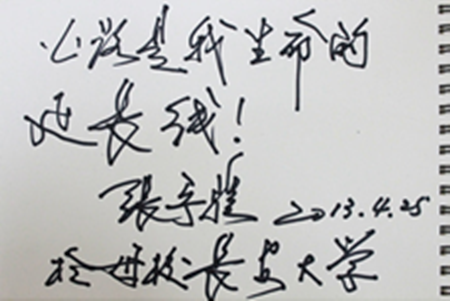 公路是我生命的
延长线!
張宇胜 2013.4.25
於母校長安大学